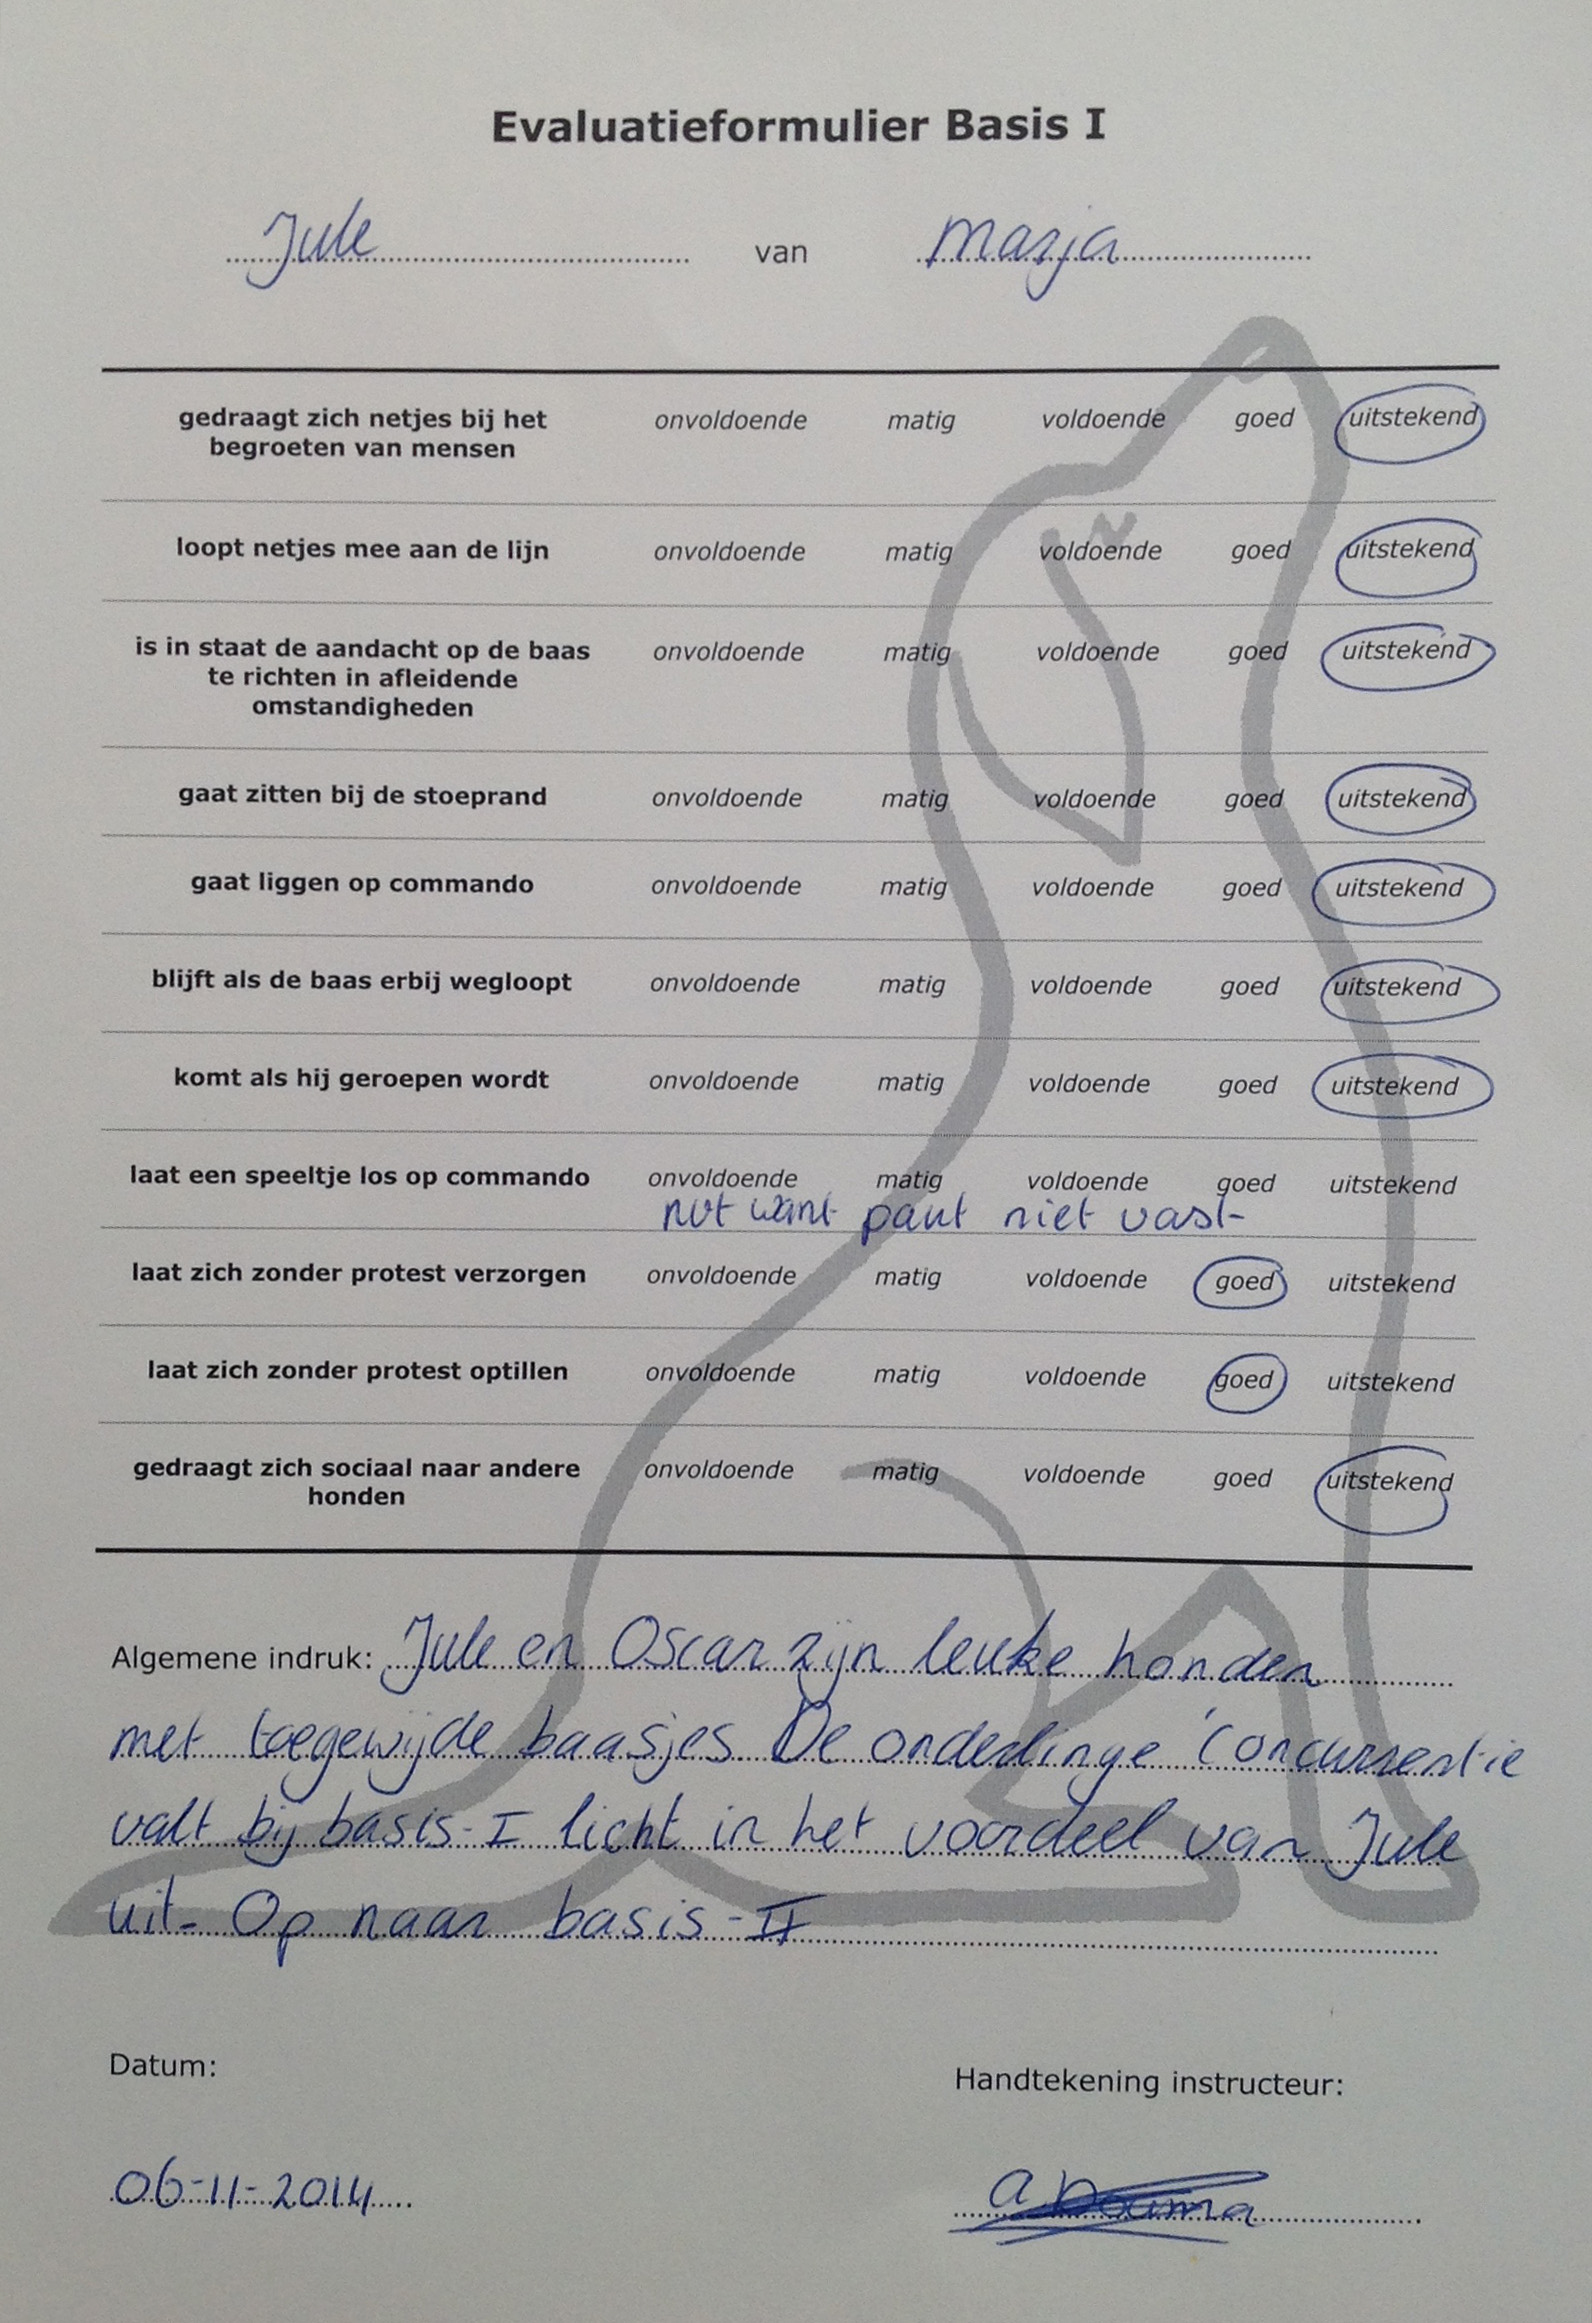 Evaluatieformulier Basis I
Jule van Marja
gedraagt zich netjes bij het onvoldoende matig voldoende goed uitstekend
begroeten van mensen
loopt netjes mee aan de lijn onvoldoende matig voldoende goed uitstekend
is in staat de aandacht op de baas onvoldoende matig voldoende goed uitstekend
te richten in afleidende
omstandigheden
gaat zitten bij de stoeprand onvoldoende matig voldoende goed uitstekend
gaat liggen op commando onvoldoende matig voldoende goed uitstekend
blijft als de baas erbij wegloopt onvoldoende matig voldoende goed uitstekend
komt als hij geroepen wordt onvoldoende matig voldoende goed uitstekend
laat een speeltje los op commando onvoldoende matig voldoende goed uitstekend
want pakt niet vast
laat zich zonder protest verzorgen onvoldoende matig voldoende goed uitstekend
laat zich zonder protest optillen onvoldoende matig voldoende goed uitstekend
gedraagt zich sociaal naar andere onvoldoende matig voldoende goed uitstekend
honden
Algemene indruk: Jule en Oscar zijn leuke honden
met toegewijde baasjes. De onderlinge concurrentie
valt bij basis-I licht in het voordeel van Jule
uit. Op naar basis-II
Datum:
Handtekening instructeur:
06-11-2014
A Douma